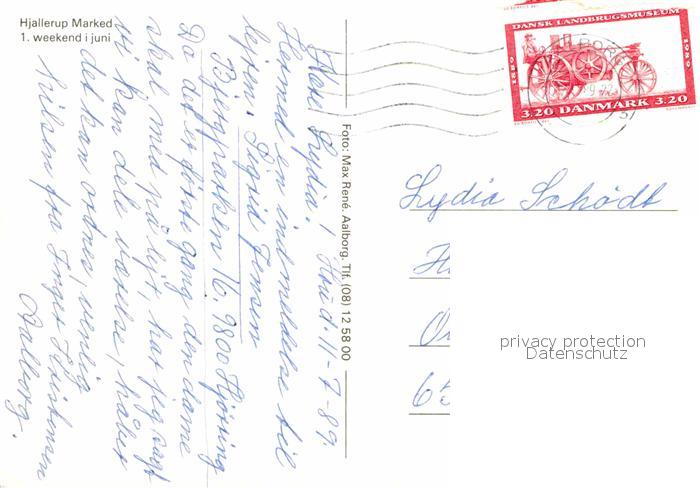 Hjallerup Marked
1. weekend i juni
Kære Lydia! Hou d 11-7-89.
Hermed en indmeldelse til
lejren. Sigrid Jensen
Bjergparken 16. 9800 Hjørring
Da det er første gang den dame
skal med på lejr, har jeg sagt
vi kan dele værelse, håber
det kan ordnes, venlig
hilsen fra Inger Kristensen
Aalborg.
Foto: Max René, Aalborg. Tlf. (08) 12 58 00
DANSK LANDBRUGSMUSEUM
1889 1989
3.20 DANMARK 3.20
Lydia Schødt
H
O
65
privacy protection
Datenschutz